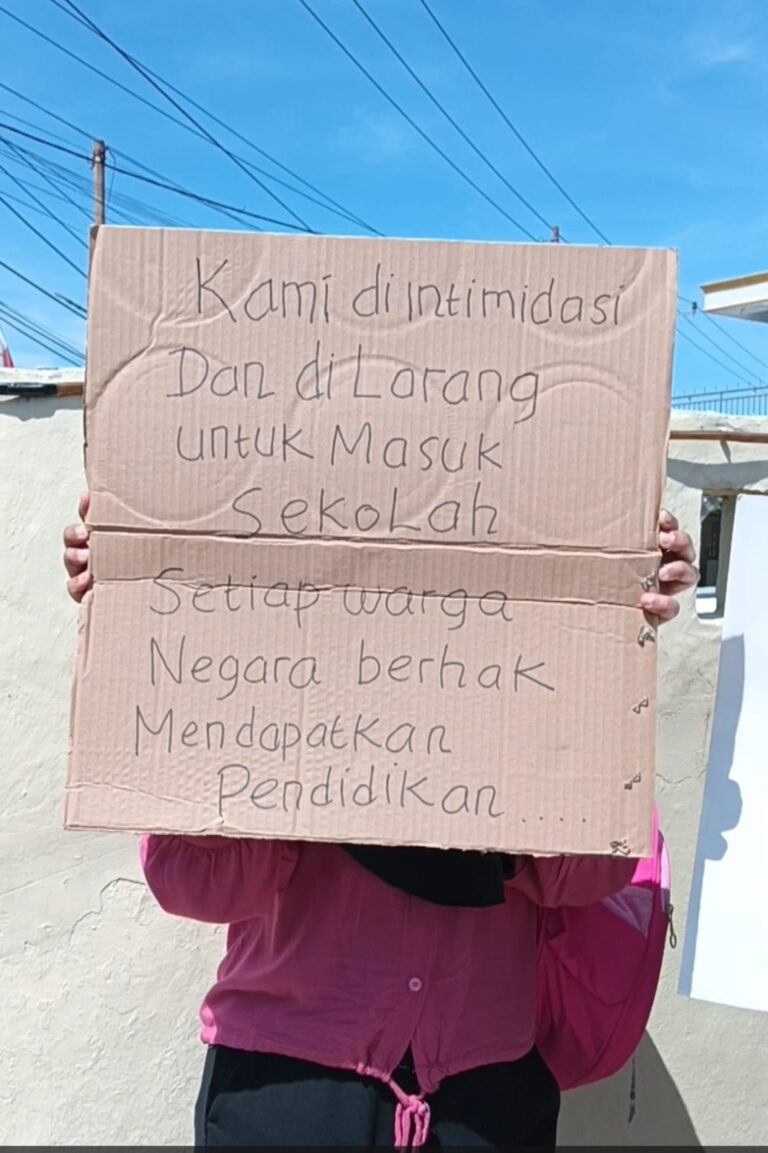 Kami di intimidasi
Dan di Larang
untuk Masuk
Sekolah
Setiap warga
Negara berhak
Mendapatkan
Pendidikan ....